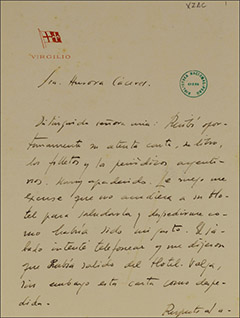 VIRGILIO
Sra. Aurora Cáceres.
Distinguida señora mía: Recibí opor-
tunamente su atenta carta, su libro,
los folletos y los periódicos argenti-
nos. Muy agradecido. Le ruego me
excuse que no acudiera a su Ho-
tel para saludarla y despedirme co-
mo hubiera sido mi gusto. El sá-
bado intenté telefonear y me dijeron
que había salido del Hotel. Valga,
sin embargo esta carta como despe-
dida.
Respecto al